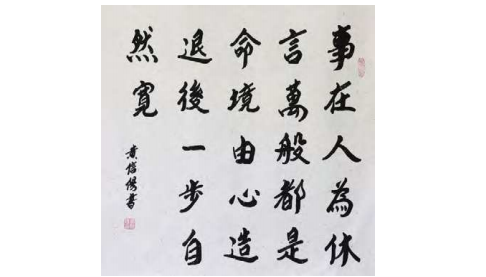 事在人為休
言萬般都是
命境由心造
退後一步自
然寬
黃信陽書